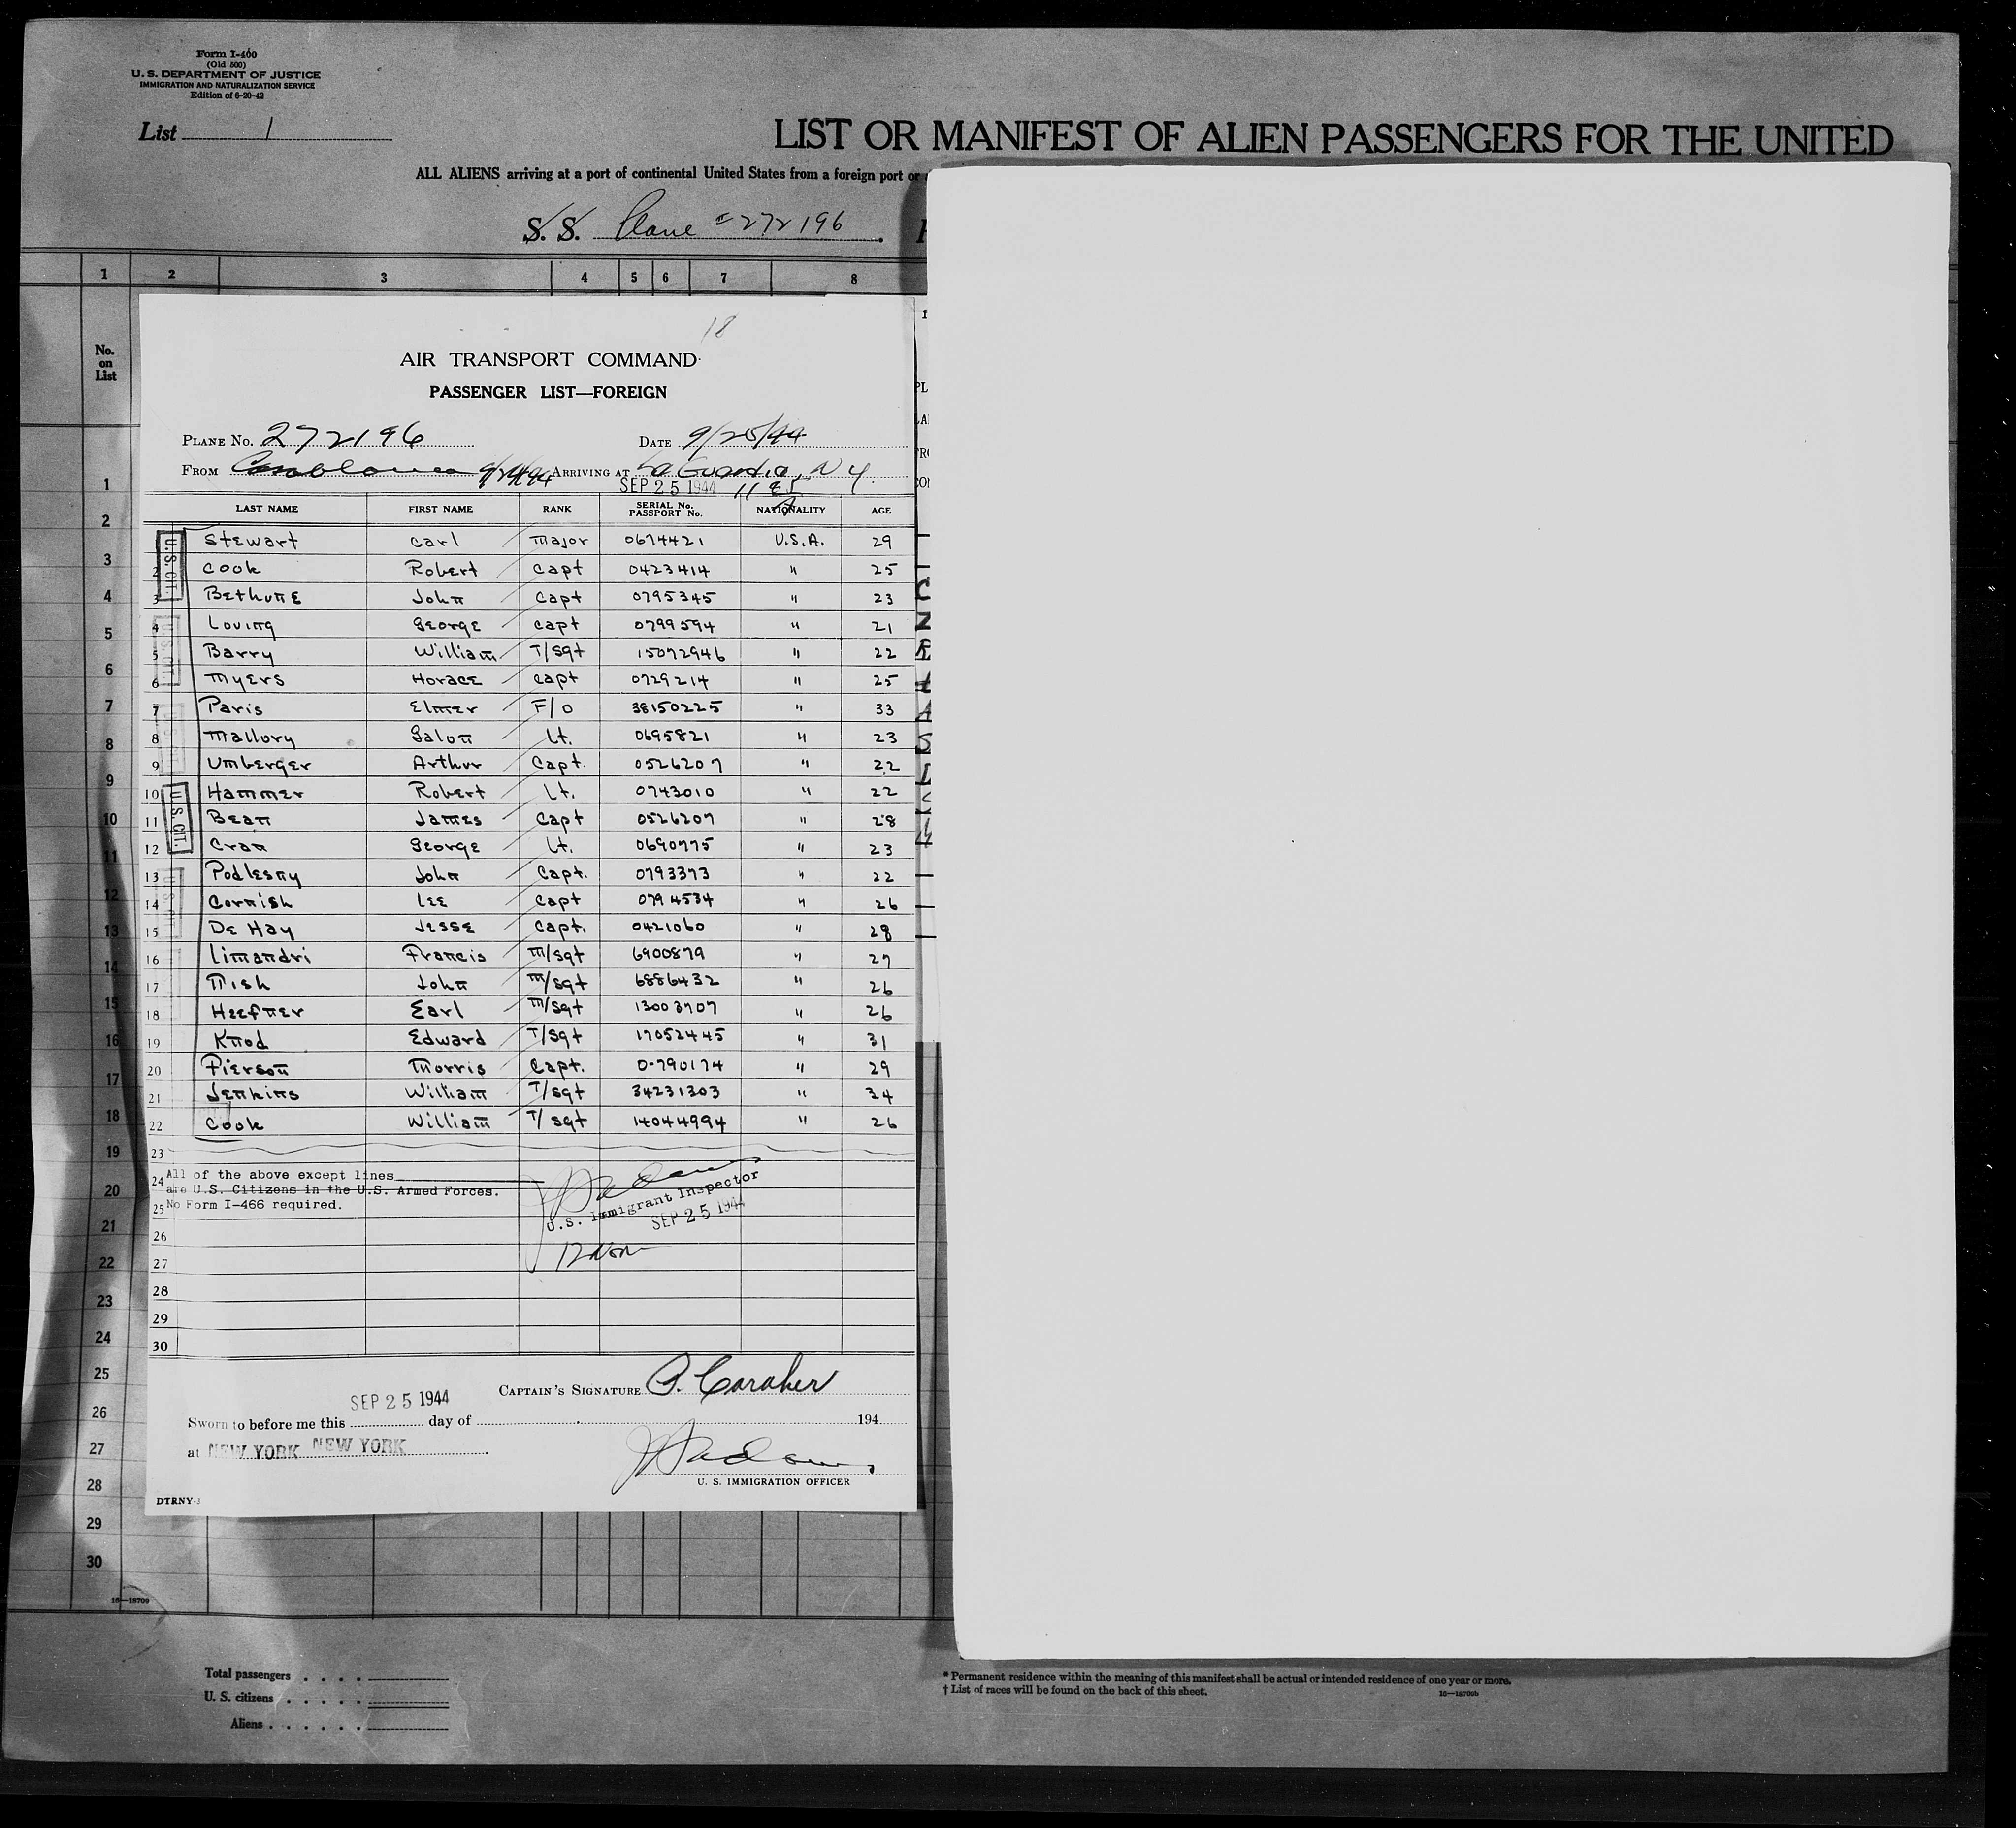 Form I-460
(Old 500)
U. S. DEPARTMENT OF JUSTICE
IMMIGRATION AND NATURALIZATION SERVICE
Edition of 6-20-42
List 1
LIST OR MANIFEST OF ALIEN PASSENGERS FOR THE UNITED
ALL ALIENS arriving at a port of continental United States from a foreign port or
S. S. Plane #272196
1 2 3 4 5 6 7 8
No. on List
18
AIR TRANSPORT COMMAND
PASSENGER LIST—FOREIGN
PLANE No. 272196 DATE 9/25/44
FROM Casablanca ARRIVING AT La Guardia, N Y
SEP 25 1944 11
LAST NAME FIRST NAME RANK SERIAL No. PASSPORT No. NATIONALITY AGE
1 Stewart Carl Major 0674421 U.S.A. 29
2 Cook Robert Capt 0423414 " 25
3 Bethune John Capt 0795345 " 23
4 Loving George Capt 0799594 " 21
5 Barry William T/Sgt 15072946 " 22
6 Myers Horace Capt 0729214 " 25
7 Paris Elmer F/O 38150225 " 33
8 Mallory Galon Lt. 0695821 " 23
9 Umberger Arthur Capt. 0526207 " 22
10 Hammer Robert Lt. 0743010 " 22
11 Bean James Capt 0526207 " 28
12 Cran George Lt. 0690775 " 23
13 Podlesny John Capt. 0793373 " 22
14 Cornish Lee Capt 0794534 " 26
15 De Hay Jesse Capt. 0421060 " 28
16 Limandri Francis M/Sgt 6900879 " 27
17 Nish John M/Sgt 6886432 " 26
18 Heefner Earl M/Sgt 13003707 " 26
19 Knod Edward T/Sgt 17052445 " 31
20 Pierson Morris Capt. 0-790174 " 29
21 Jenkins William T/Sgt 34231303 " 34
22 Cook William T/Sgt 14044994 " 26
U. S. CIT.
U. S. CIT.
23
24 All of the above except lines
are U.S. Citizens in the U.S. Armed Forces.
25 No Form I-466 required.
U.S. Immigrant Inspector
SEP 25 1944
26
12 Noon
27
28
29
30
CAPTAIN'S SIGNATURE P. Caraher
SEP 25 1944
Sworn to before me this day of 194
at NEW YORK NEW YORK
U. S. IMMIGRATION OFFICER
DTRNY-3
1
2
3
4
5
6
7
8
9
10
11
12
13
14
15
16
17
18
19
20
21
22
23
24
25
26
27
28
29
30
16—18709
Total passengers
U. S. citizens
Aliens
* Permanent residence within the meaning of this manifest shall be actual or intended residence of one year or more.
† List of races will be found on the back of this sheet.
16—18709b